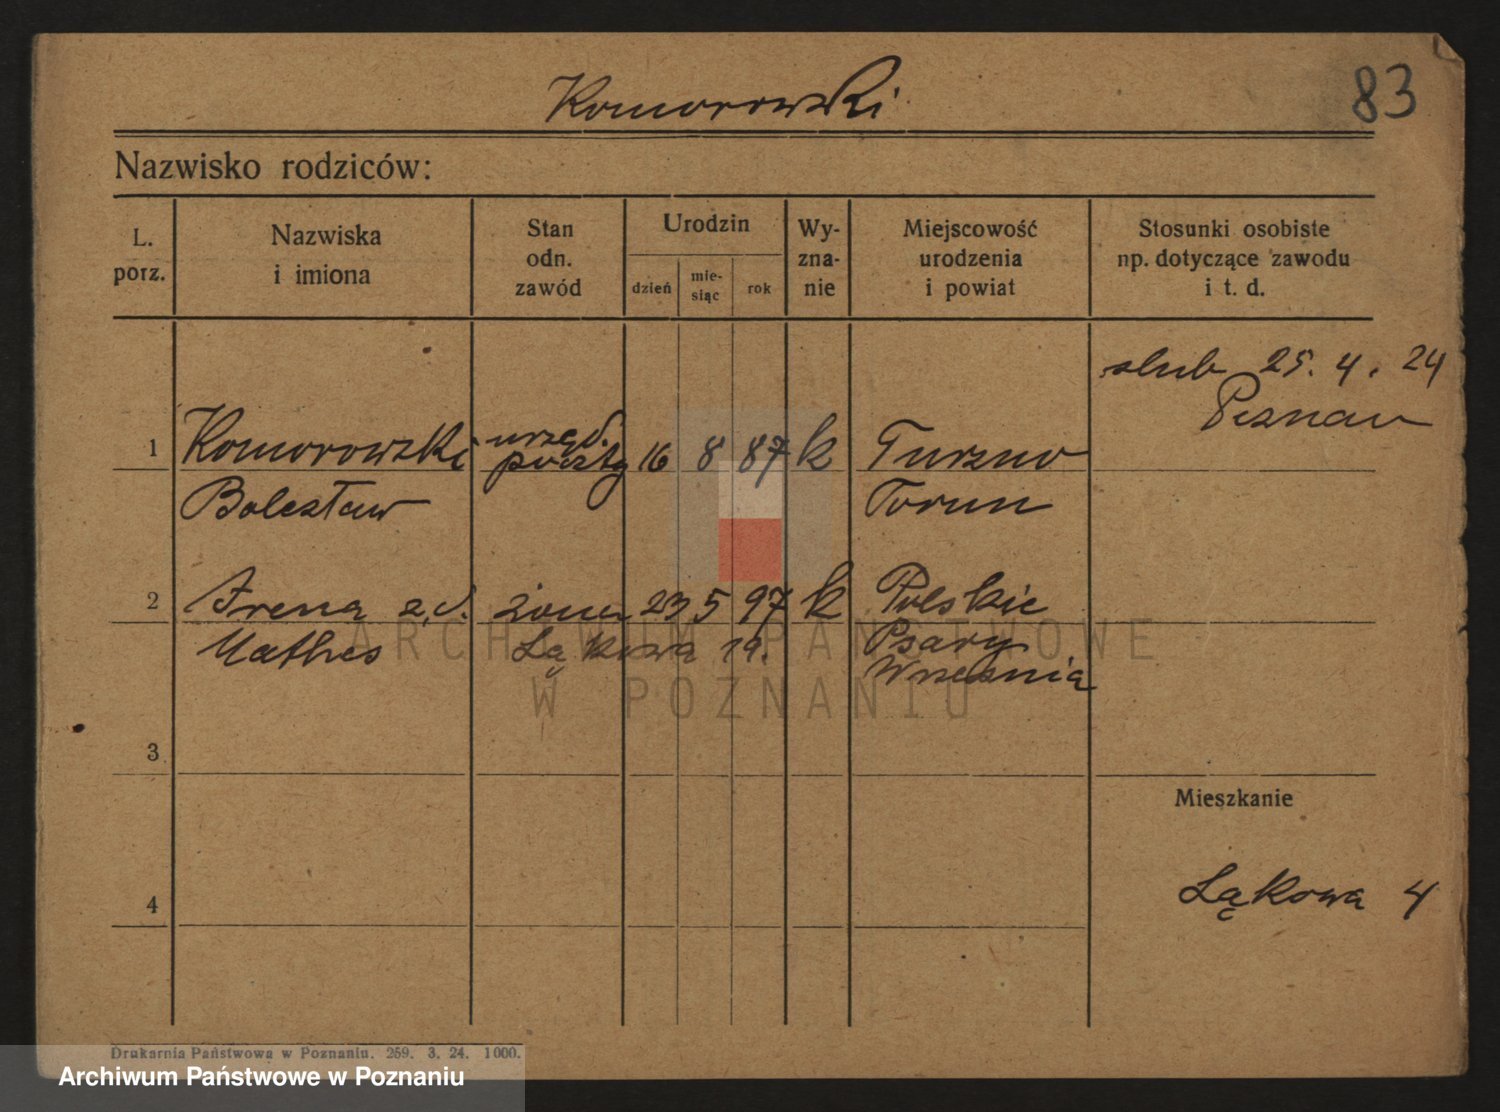 Komorowski
83
Nazwisko rodziców:
L. porz.
Nazwiska i imiona
Stan odn. zawód
Urodzin
dzień
mie- siąc
rok
Wy- zna- nie
Miejscowość urodzenia i powiat
Stosunki osobiste np. dotyczące zawodu i t. d.
slub 25. 4. 24
Poznan
1 Komorowski urzęd. poczty 16 8 87 k Turzno
Bolesław Torun
2 Irena z d. żona 23 5 97 k Polskie
Mathes Łąkowa 19. Psary
Wrzesnia
3
Mieszkanie
4
Łąkowa 4
ARCHIWUM PAŃSTWOWE
W POZNANIU
Drukarnia Państwowa w Poznaniu. 259. 3. 24. 1000.
Archiwum Państwowe w Poznaniu